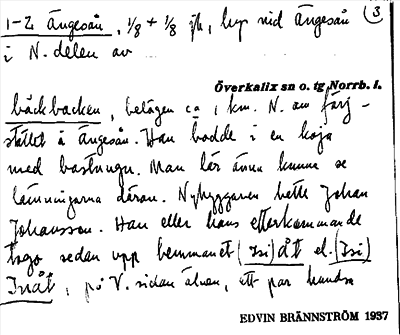 1-2 Ängesån, 1/8 + 1/8 , byn vid Ängesån (3
i N. delen av
Överkalix sn o. tg Norrb. l.
bäckbacken, belägen ca 1 km. N. om färj-
stället å Ängesån. Han bodde i en koja
med bastugn. Man lär ännu kunna se
lämningarna däran. Nybyggaren hette Johan
Johansson. Han eller hans efterkommande
togo sedan upp hemmanet (Isi)åt el. (Isi)
Inåt, på V. sidan älven, ett par hundra
EDVIN BRÄNNSTRÖM 1937